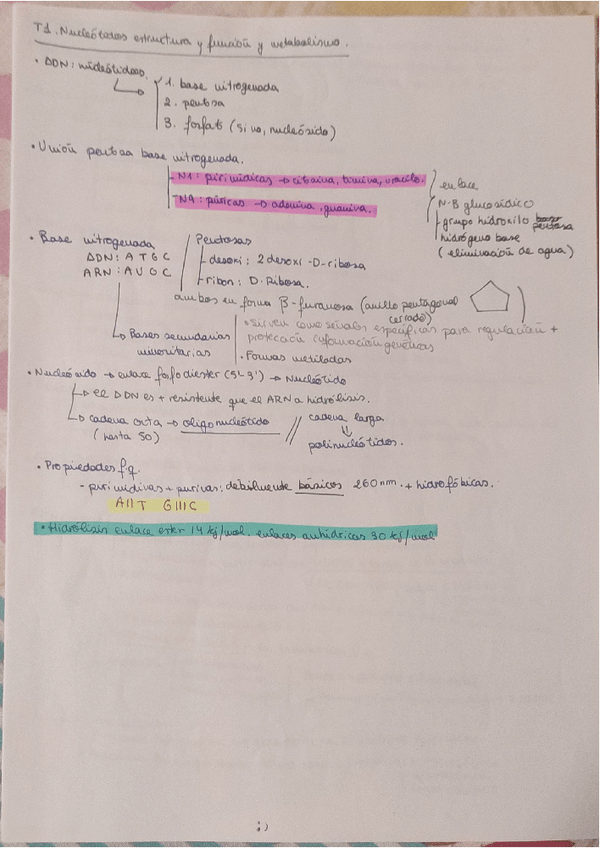 T1. Nucleótidos estructura y función y metabolismo.
• ADN: nucleótidos.
1. base nitrogenada
2. pentosa
3. fosfato (si no, nucleósido)
• Unión pentosa base nitrogenada.
- N1: pirimidicas → citosina, timina, uracilo.
- N9: púricas → adenina, guanina.
enlace
N-β glucosídico
- grupo hidroxilo base pentosa
hidrógeno base
(eliminación de agua)
• Base nitrogenada
ADN: A T G C
ARN: A U G C
Pentosas
- desoxi: 2desoxi-D-ribosa
- ribon: D-Ribosa.
ambos en forma β-furanosa (anillo pentagonal cerrado)
→ Bases secundarias
minoritarias
• Sirven como señales específicas para regulación +
protección información genética
• Formas metiladas
• Nucleósido → enlace fosfodiester (5'-3') → Nucleótido
→ el ADN es + resistente que el ARN a hidrólisis.
→ cadena corta → oligonucleótido
(hasta 50)
cadena larga
polinucleótidos.
• Propiedades fq.
- pirimidinas + purinas: debilmente básicos 260nm. + hidrofóbicas.
A||T G|||C
• Hidrólisis enlace ester 14 kj/mol. enlaces anhídricos 30 kj/mol
:)